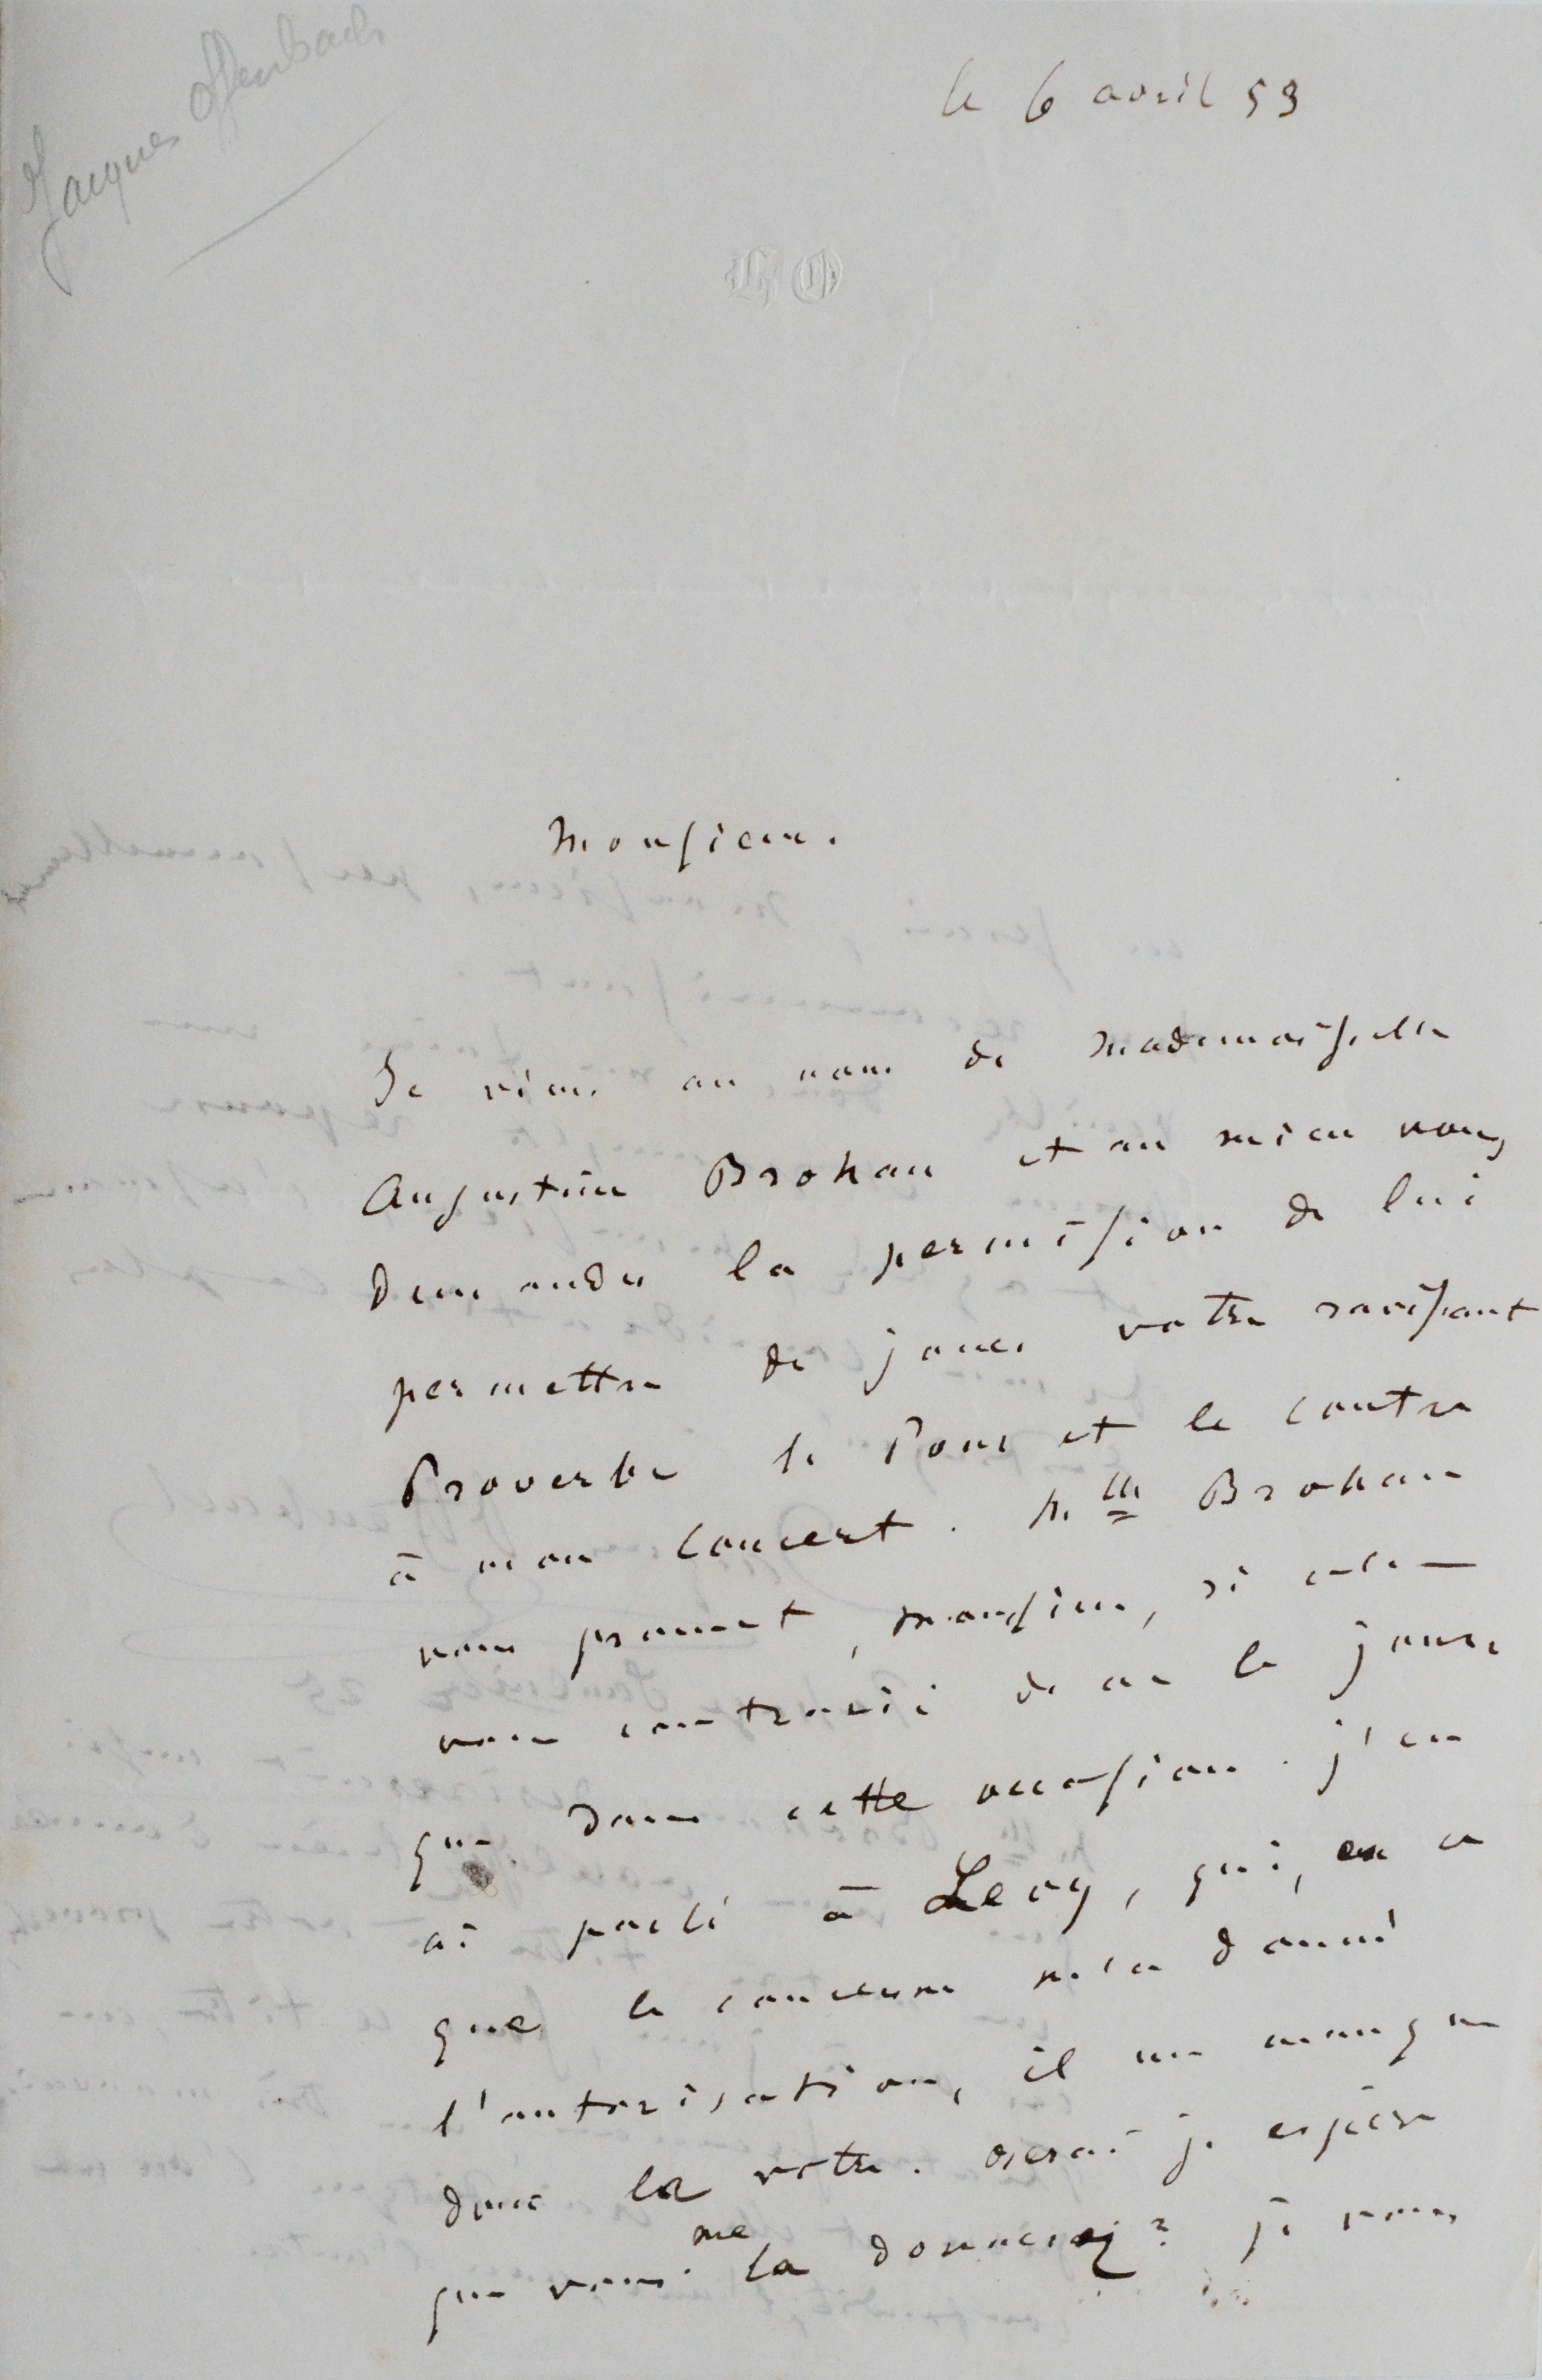 Jacques Offenbach
le 6 avril 53
HO
Monsieur.
Je viens au nom de Mademoiselle
Augustine Brohan et au mien vous
demander la permission de lui
permettre de jouer votre ravissant
Proverbe le Pour et le contre
à mon concert. Mlle Brohan
vous promet, monsieur, si cela
vous contrarie de ne le jouer
que dans cette occasion. j'en
ai parlé à Lecoy, qui, en ce
que le concerne m'a donné
l'autorisation, il me manque
donc la votre. oserai je espérer
que vous me la donnerez? je vous